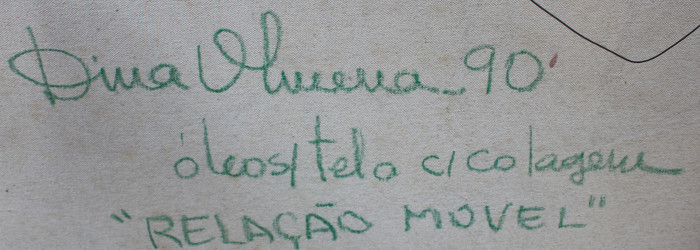 Dina Oliveira - 90
óleos/tela c/colagem
"RELAÇÃO MOVEL"